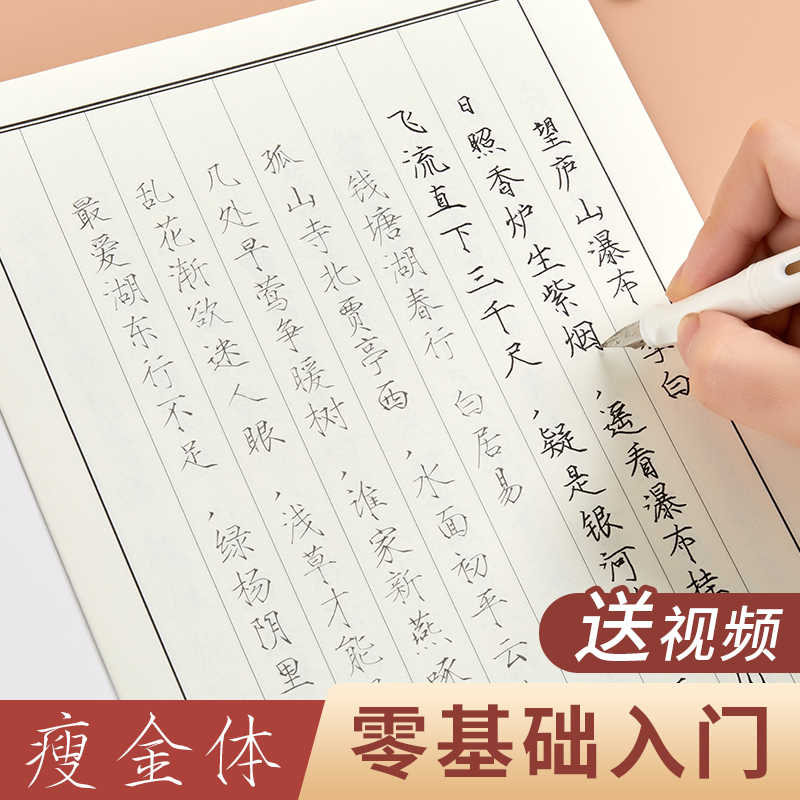 望庐山瀑布 李白
日照香炉生紫烟，遥看瀑布挂
飞流直下三千尺，疑是银河
钱塘湖春行 白居易
孤山寺北贾亭西，水面初平云
几处早莺争暖树，谁家新燕啄
乱花渐欲迷人眼，浅草才能
最爱湖东行不足，绿杨阴里
送视频
瘦金体
零基础入门